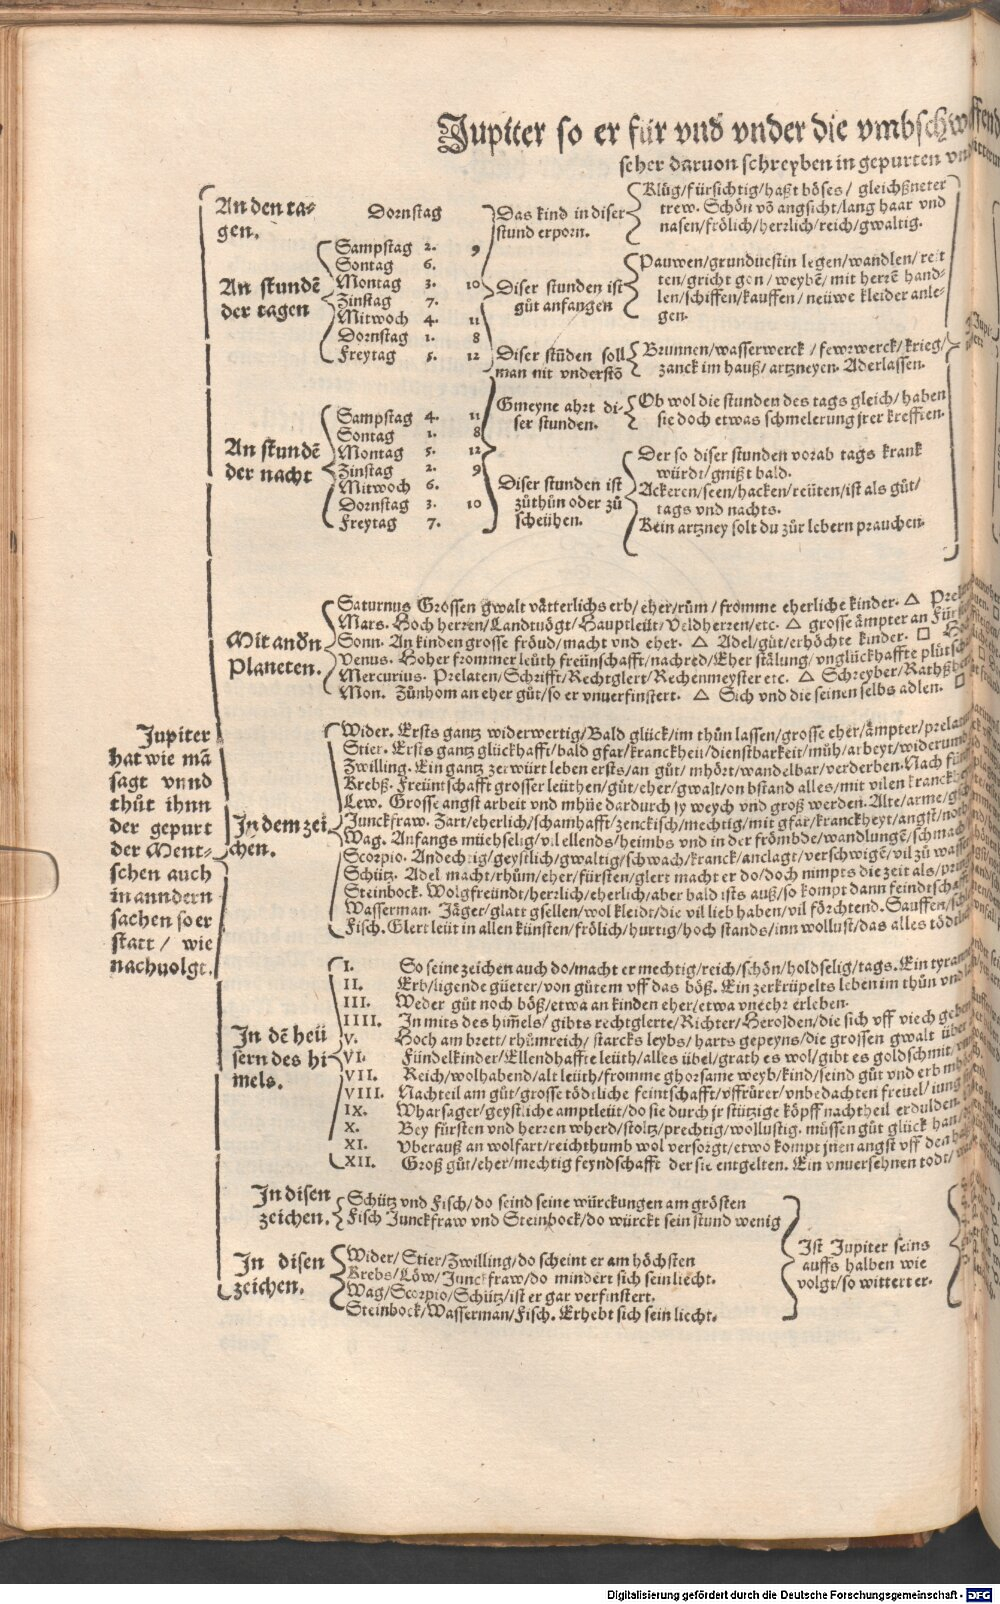 Jupiter so er für vnd vnder die vmbschw
scher daruon schreyben in gepurten vn
An den ta-
gen.
Dornstag
Das kind in diser
stund erporn.
Klůg/fürsichtig/haßt böses/ gleichßneter
trew. Schön võ angsicht/lang haar vnd
nasen/frölich/herrlich/reich/gwaltig.
An stundẽ
der tagen
Sampstag 2. 9
Sontag 6.
Montag 3. 10
Zinstag 7.
Mitwoch 4. 11
Dornstag 1. 8
Freytag 5. 12
Diser stunden ist
gůt anfangen
Pauwen/grunduestin legen/wandlen/reit
ten/gricht gon/weybẽ/mit herrẽ hand-
len/schiffen/kauffen/neüwe kleider anle-
gen.
Diser stũden soll
man nit vnderstõ
Brunnen/wasserwerck/fewrwerck/krieg/
zanck im hauß/artzneyen. Aderlassen.
An stundẽ
der nacht
Sampstag 4. 11
Sontag 1. 8
Montag 5. 12
Zinstag 2. 9
Mitwoch 6.
Dornstag 3. 10
Freytag 7.
Gmeyne ahrt di-
ser stunden.
Ob wol die stunden des tags gleich/haben
sie doch etwas schmelerung jrer krefften.
Diser stunden ist
zůthůn oder zů
scheühen.
Der so diser stunden vorab tags kranck
würdt/gnißt bald.
Ackeren/seen/hacken/reüten/ist als gůt/
tags vnd nachts.
Kein artzney solt du zůr lebern prauchen.
Mit andn̄
Planeten.
Saturnus Grossen gwalt vätterlichs erb/eher/rům/fromme eherliche kinder. △
Mars. Hoch herren/Landtuögt/Hauptleüt/Veldherren/etc. △ grosse ämpter an Für
Sonn. An kinden grosse fröud/macht vnd eher. △ Adel/gůt/erhöchte kinder. □
Venus. Hoher frommer leüth freünschafft/nachred/Eher stälung/vnglückhaffte
Mercurius. Prelaten/Schrifft/Rechtglert/Rechenmeyster etc. △ Schreyber/
Mon. Zůnhom an eher gůt/so er vnuerfinstert. △ Sich vnd die seinen selbs adlen. □
Jupiter
hat wie mã
sagt vnnd
thůt ihnn
der gepurt
der Ment-
schen auch
in anndern
sachen so er
statt/ wie
nachuolgt.
In dem zei
chen.
Wider. Ersts gantz widerwertig/Bald glück/im thůn lassen/grosse eher/ämpter/
Stier. Ersts gantz glückhafft/bald gfar/kranckheit/dienstbarkeit/müh/arbeyt/widerum
Zwilling. Ein gantz zerwürt leben ersts/an gůt/mhört/wandelbar/verderben. Nach
Krebß. Freüntschafft grosser leüthen/gůt/eher/gwalt/on bstand alles/mit vilen
Lew. Grosse angst arbeit vnd mhüe dardurch sy weych vnd groß werden. Alte/arme/
Junckfraw. Zart/eherlich/schamhafft/zenckisch/mechtig/mit gfar/kranckheyt/angst/
Wag. Anfangs müehselig/vil ellends/heimbs vnd in der frömbde/wandlungẽ/
Scorpio. Andechtig/geystlich/gwaltig/schwach/kranck/anclagt/verschwigẽ/vil zů
Schütz. Adel macht/rhům/eher/fürsten/glert macht er do/doch nimpts die zeit als/
Steinbock. Wolgfreündt/herrlich/eherlich/aber bald ists auß/so kompt dann
Wasserman. Jäger/glatt gsellen/wol kleidt/die vil lieb haben/vil förchtend. Sauffen/
Fisch. Glert leüt in allen künsten/frölich/hurtig/hoch stands/inn wollust/das alles
In dẽ heü
sern des hi
mels.
I. So seine zeichen auch do/macht er mechtig/reich/schön/holdselig/tags. Ein
II. Erb/ligende güeter/von gůtem vff das böß. Ein zerkrüpelts leben im thůn vnd
III. Weder gůt noch böß/etwa an kinden eher/etwa vneehr erleben.
IIII. In mits des him̃els/gibts rechtglerte/Richter/Herolden/die sich vff viech
V. Hoch am brett/rhůmreich/starcks leybs/harts gepeyns/die grossen gwalt
VI. Fündelkinder/Ellendhaffte leüth/alles übel/grath es wol/gibt es goldschmit/
VII. Reich/wolhabend/alt leüth/fromme ghorsame weyb/kind/seind gůt vnd erb
VIII. Nachteil am gůt/grosse tödtliche feintschafft/vffrürer/vnbedachten freuel/
IX. Wharsager/geystliche amptleüt/do sie durch jr stützige köpff nachtheil erdulden.
X. Bey fürsten vnd herren wherd/stoltz/prechtig/wollustig. müssen gůt glück
XI. Vberauß an wolfart/reichthumb wol versorgt/etwo kompt jnen angst vff den
XII. Groß gůt/eher/mechtig feyndschafft der sie entgelten. Ein vnuersehnen todt/
In disen
zeichen.
Schütz vnd Fisch/do seind seine würckungen am grösten
Fisch Junckfraw vnd Steinbock/do würckt sein stund wenig
In disen
zeichen.
Wider/Stier/Zwilling/do scheint er am höchsten
Krebs/Löw/Junckfraw/do mindert sich sein liecht.
Wag/Scorpio/Schütz/ist er gar verfinstert.
Steinbock/Wasserman/Fisch. Erhebt sich sein liecht.
Ist Jupiter seins
auffs halben wie
volgt/so wittert er.
Digitalisierung gefördert durch die Deutsche Forschungsgemeinschaft - DFG